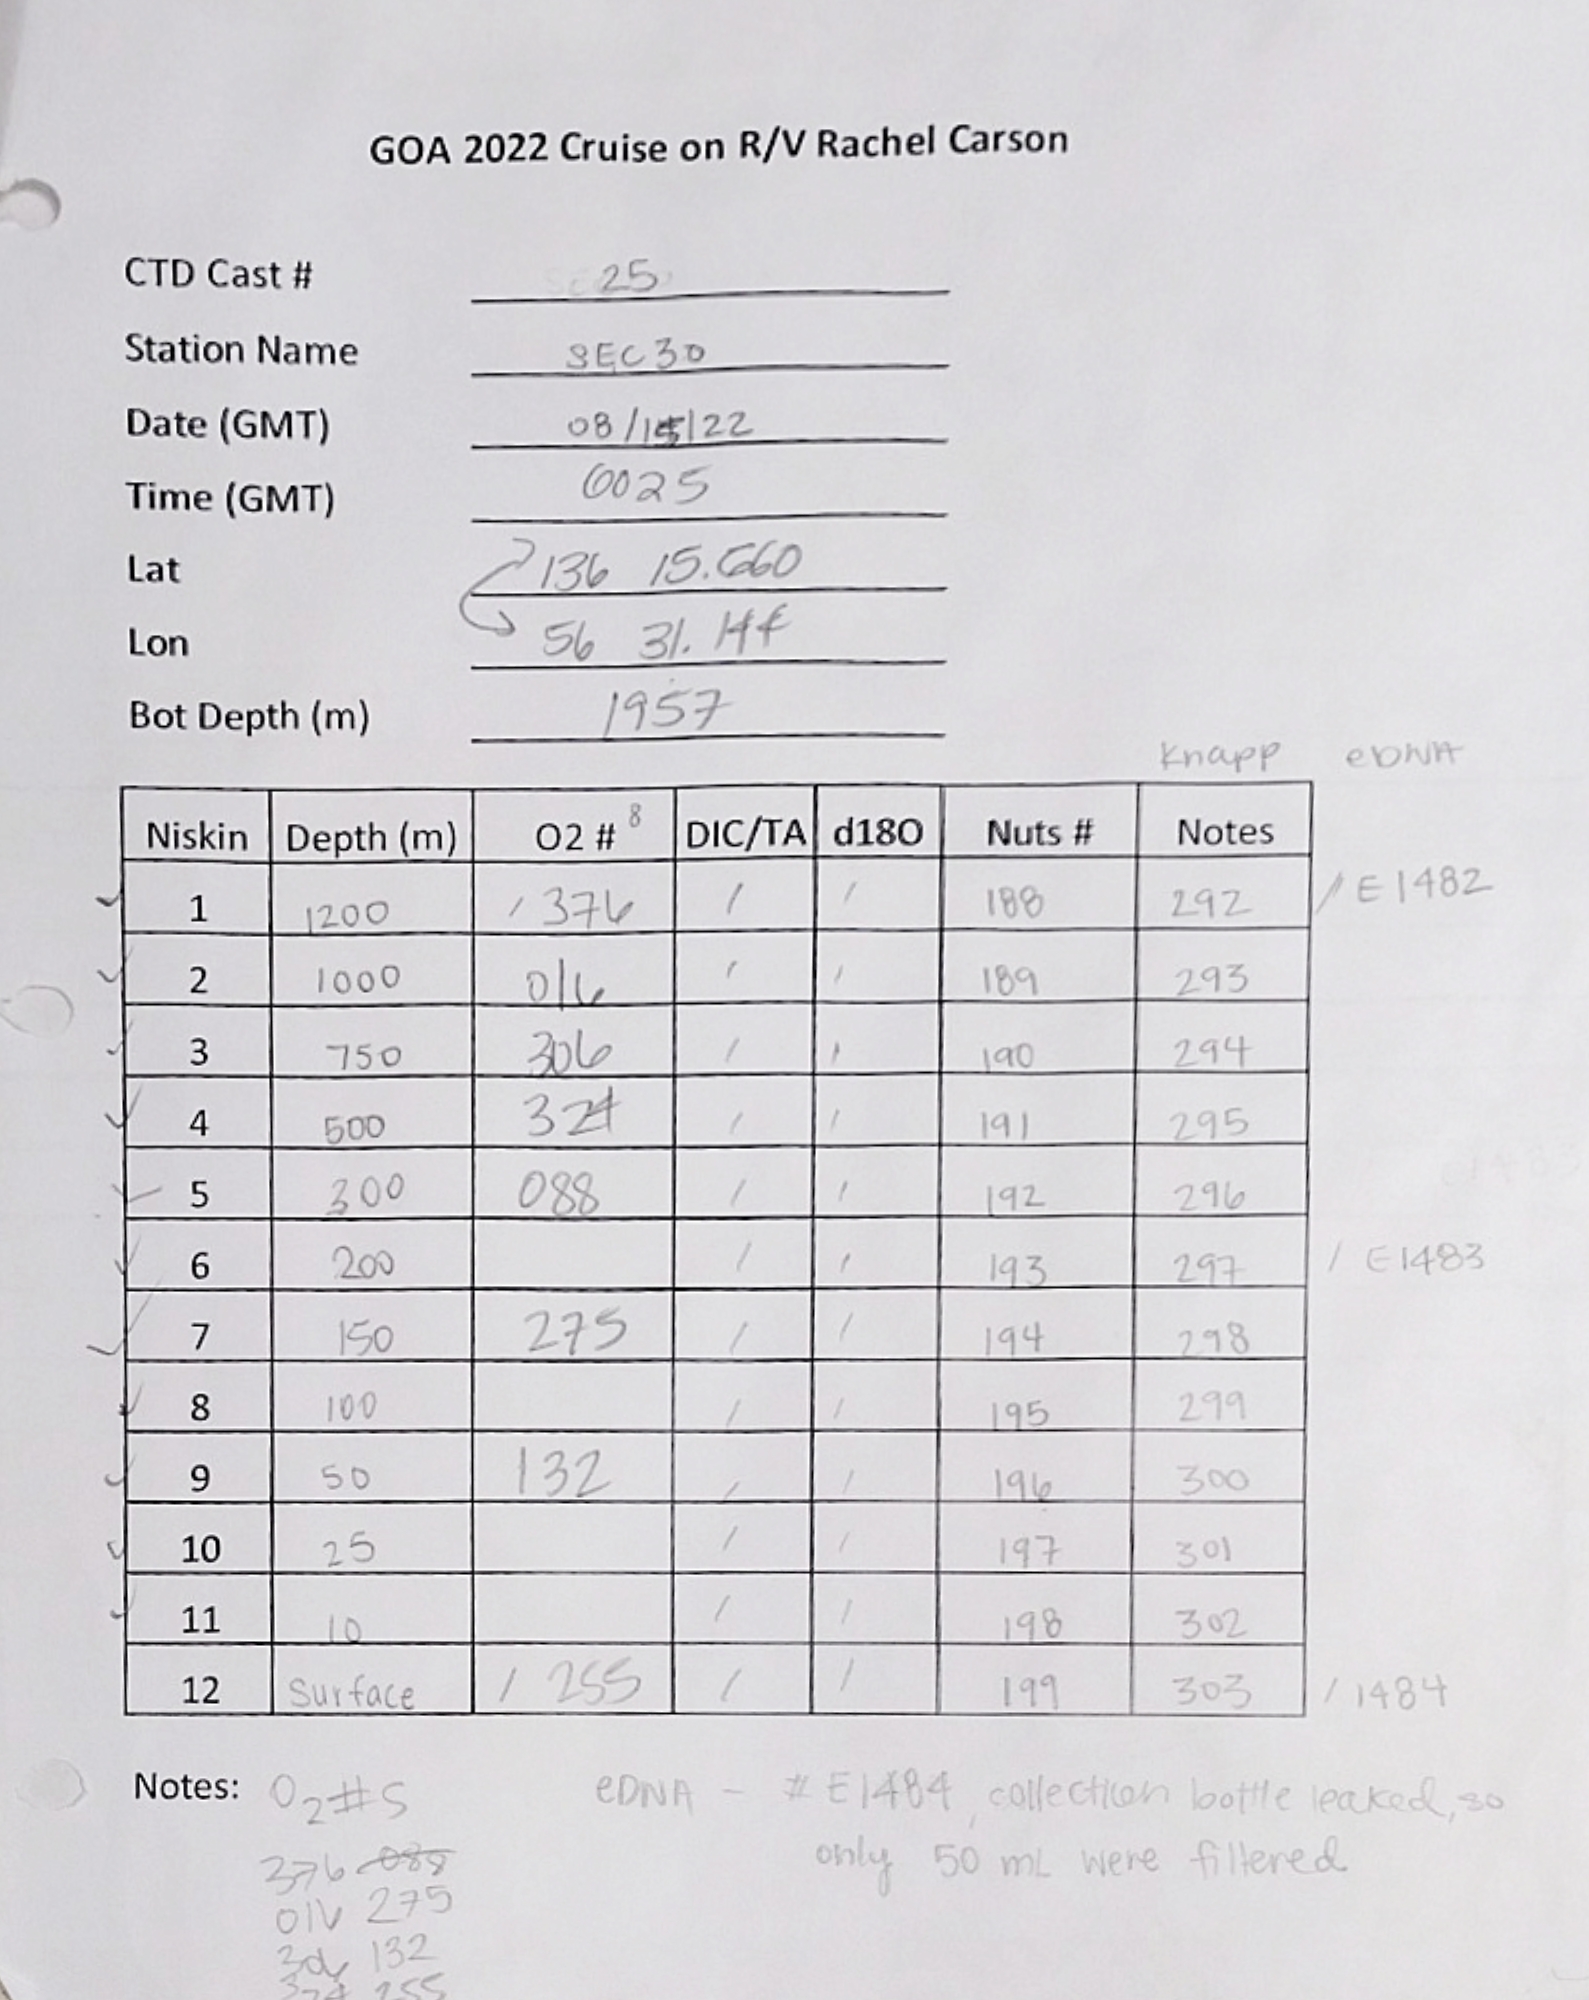 GOA 2022 Cruise on R/V Rachel Carson
CTD Cast # 25
Station Name SEC30
Date (GMT) 08/15/22
Time (GMT) 0025
Lat 136 15.660
Lon 56 31.144
Bot Depth (m) 1957
Knapp eDNA
Niskin Depth (m) O2 # 8 DIC/TA d18O Nuts # Notes
1 1200 / 376 / / 188 292 / E1482
2 1000 016 / / 189 293
3 750 306 / / 190 294
4 500 324 / / 191 295
5 300 088 / / 192 296
6 200 / / 193 297 / E1483
7 150 275 / / 194 298
8 100 / / 195 299
9 50 132 / / 196 300
10 25 / / 197 301
11 10 / / 198 302
12 Surface / 255 / / 199 303 / 1484
Notes: O2#s eDNA - # E1484, collection bottle leaked, so
only 50 mL were filtered
376 088
016 275
306 132
324 255